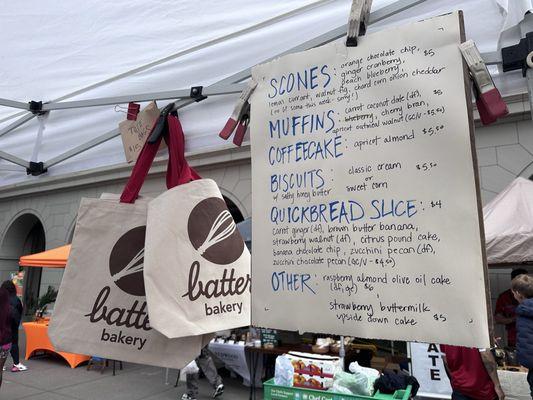 SCONES: orange chocolate chip, $5
ginger cranberry,
peach blueberry,
lemon currant, walnut fig, chard corn onion cheddar
MUFFINS: carrot coconut date (df), $5
blueberry, cherry bran,
apricot oatmeal walnut
COFFEECAKE: apricot almond $5.50
BISCUITS: classic cream $5.50
w/ salty honey butter or
sweet corn
QUICKBREAD SLICE: $4
carrot ginger (df), brown butter banana,
strawberry walnut (df), citrus pound cake,
banana chocolate chip, zucchini pecan (df),
zucchini chocolate pecan (GC/V - $4.50)
OTHER: raspberry almond olive oil cake
(df, gc) $6
strawberry buttermilk
upside down cake $5
batter
bakery
batter
bakery